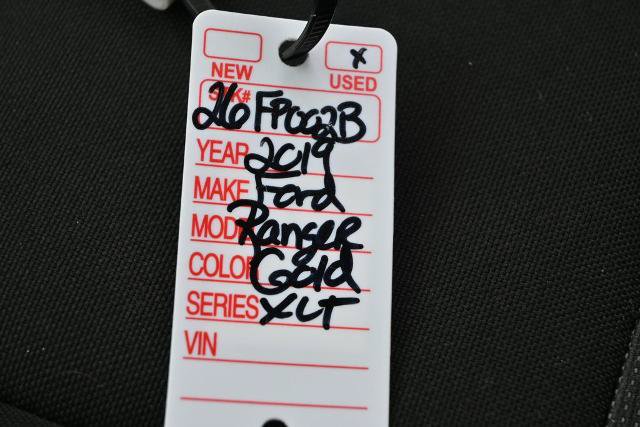 X
NEW USED
STK# 26FP002B
YEAR 2019
MAKE Ford
MODEL Ranger
COLOR Gold
SERIES XLT
VIN